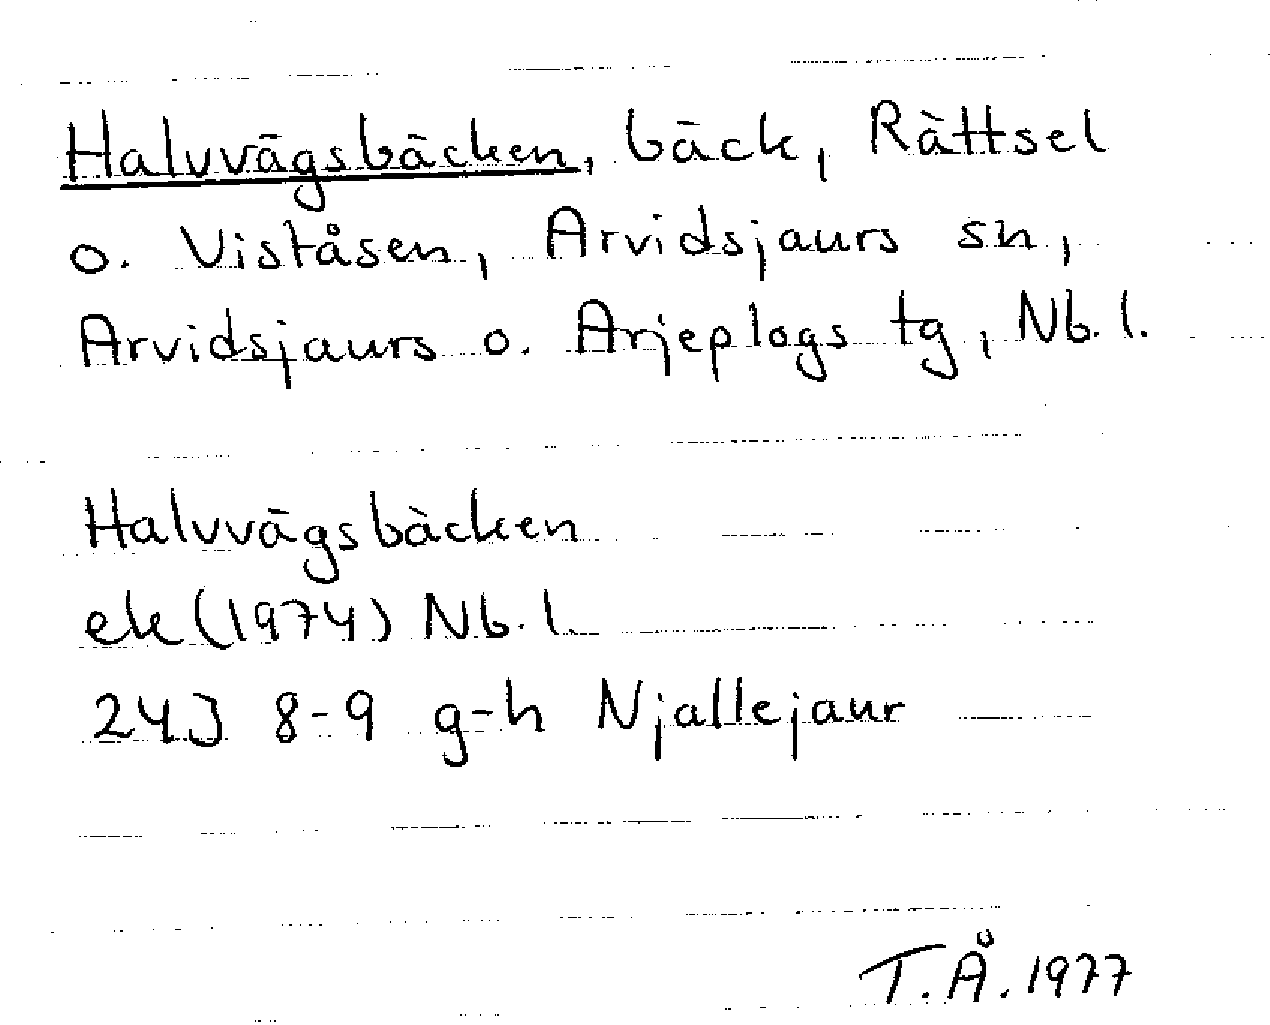 Halvvägsbäcken, bäck, Rättsel
o. Viståsen, Arvidsjaurs sn,
Arvidsjaurs o. Arjeplogs tg, Nb. l.
Halvvägsbäcken
ek (1974) Nb. l.
24J 8-9 g-h Njallejaur
T.Å. 1977